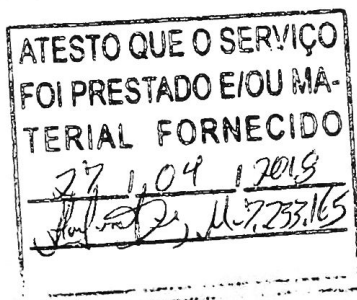 ATESTO QUE O SERVIÇO
FOI PRESTADO E/OU MA-
TERIAL FORNECIDO
27 / 04 / 2018
M-7.233.165